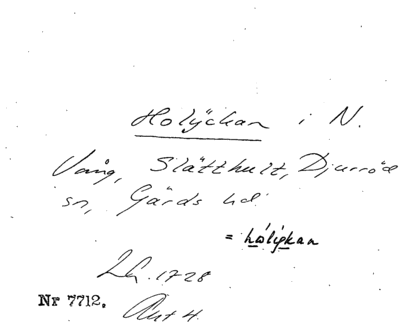 Holÿckan i N.
Vång, Slätthult, Djurröd
sn, Gärds hd
= hólýkan
Lh. 1728
Nr 7712. Akt 4.